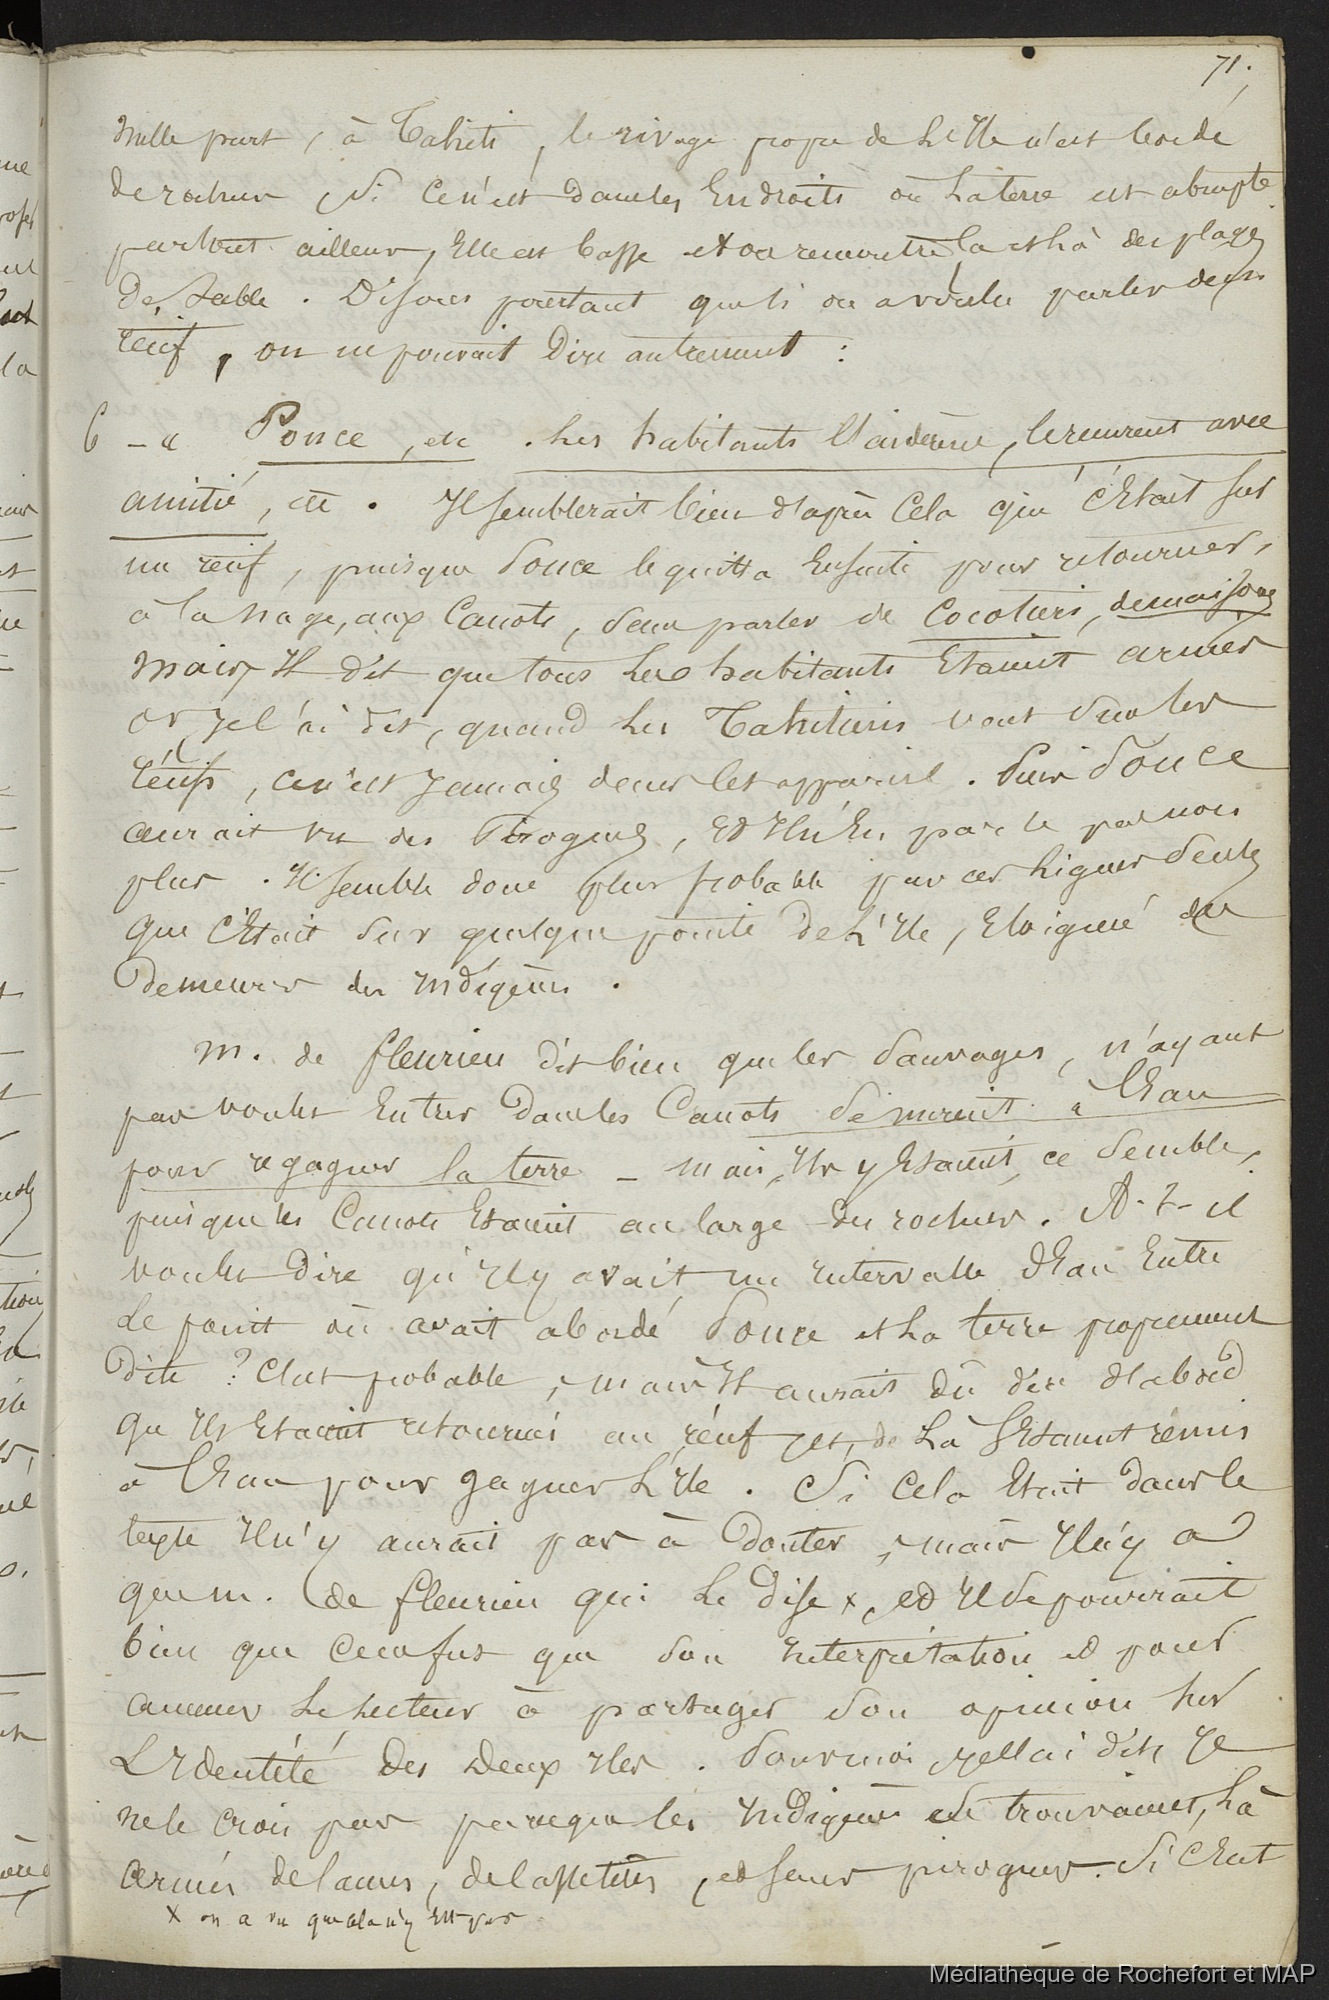 71.
Nulle part, à Tahiti, le rivage propre de L'Ile n'est bordé
de rochers, si ce n'est dans les Endroits où la terre est abrupte
partout ailleurs, Elle est basse et on rencontre là et là des plages
de sable. Disons pourtant que si on a voulu parler des
récif, on ne pouvait dire autrement :
6 - « Ponce, etc. Les habitants l'aiderent, le reçurent avec
amitié, etc. Il semblerait bien d'après Cela que c'Etait sur
un récif, puisque Ponce le quitta Ensuite pour retourner,
à la nage, aux Canots, sans parler de Cocotiers, de maisons
mais Il dit que tous les habitants Etaient armés
or je l'ai dit, quand les Tahitiens vont sur les
récifs, ce n'est jamais dans cet appareil. Puis Ponce
aurait vu des Pirogues, Et Il n'En parle pas non
plus. Il semble donc plus probable par ces lignes seules
que c'Etait sur quelque pointe de L'Ile, Eloigné des
demeures des Indigènes.
M. de fleurieu dit bien que les Sauvages, n'ayant
pas voulu Entrer dans les Canots se mirent à l'Eau
pour regagner la terre - mais, Ils y Etaient, ce semble,
puisque les Canots Etaient au large des rochers. A-t-il
voulu dire qu'Il y avait un Intervalle d'Eau Entre
le point où avait abordé Ponce et la terre proprement
dite ? C'est probable, mais Il aurait dû dire d'abord
qu'Ils Etaient retournés au récif et, de Là s'Etaient remis
à l'Eau pour gagner L'Ile. Si Cela Etait dans le
texte Il n'y aurait pas à douter, mais Il n'y a
que m. de fleurieu qui le dise x, et Il se pourrait
bien que ce ne fut que son Interprétation et pour
amener le lecteur à partager son opinion sur
L'Identité des deux Iles. Pour moi, je l'ai dit, Je
ne le crois pas parceque les Indigènes se trouvaient, là
armés de lances, de massues, et sans pirogues. Si c'Eut
x on a vu que cela n'y Est pas
Médiathèque de Rochefort et MAP